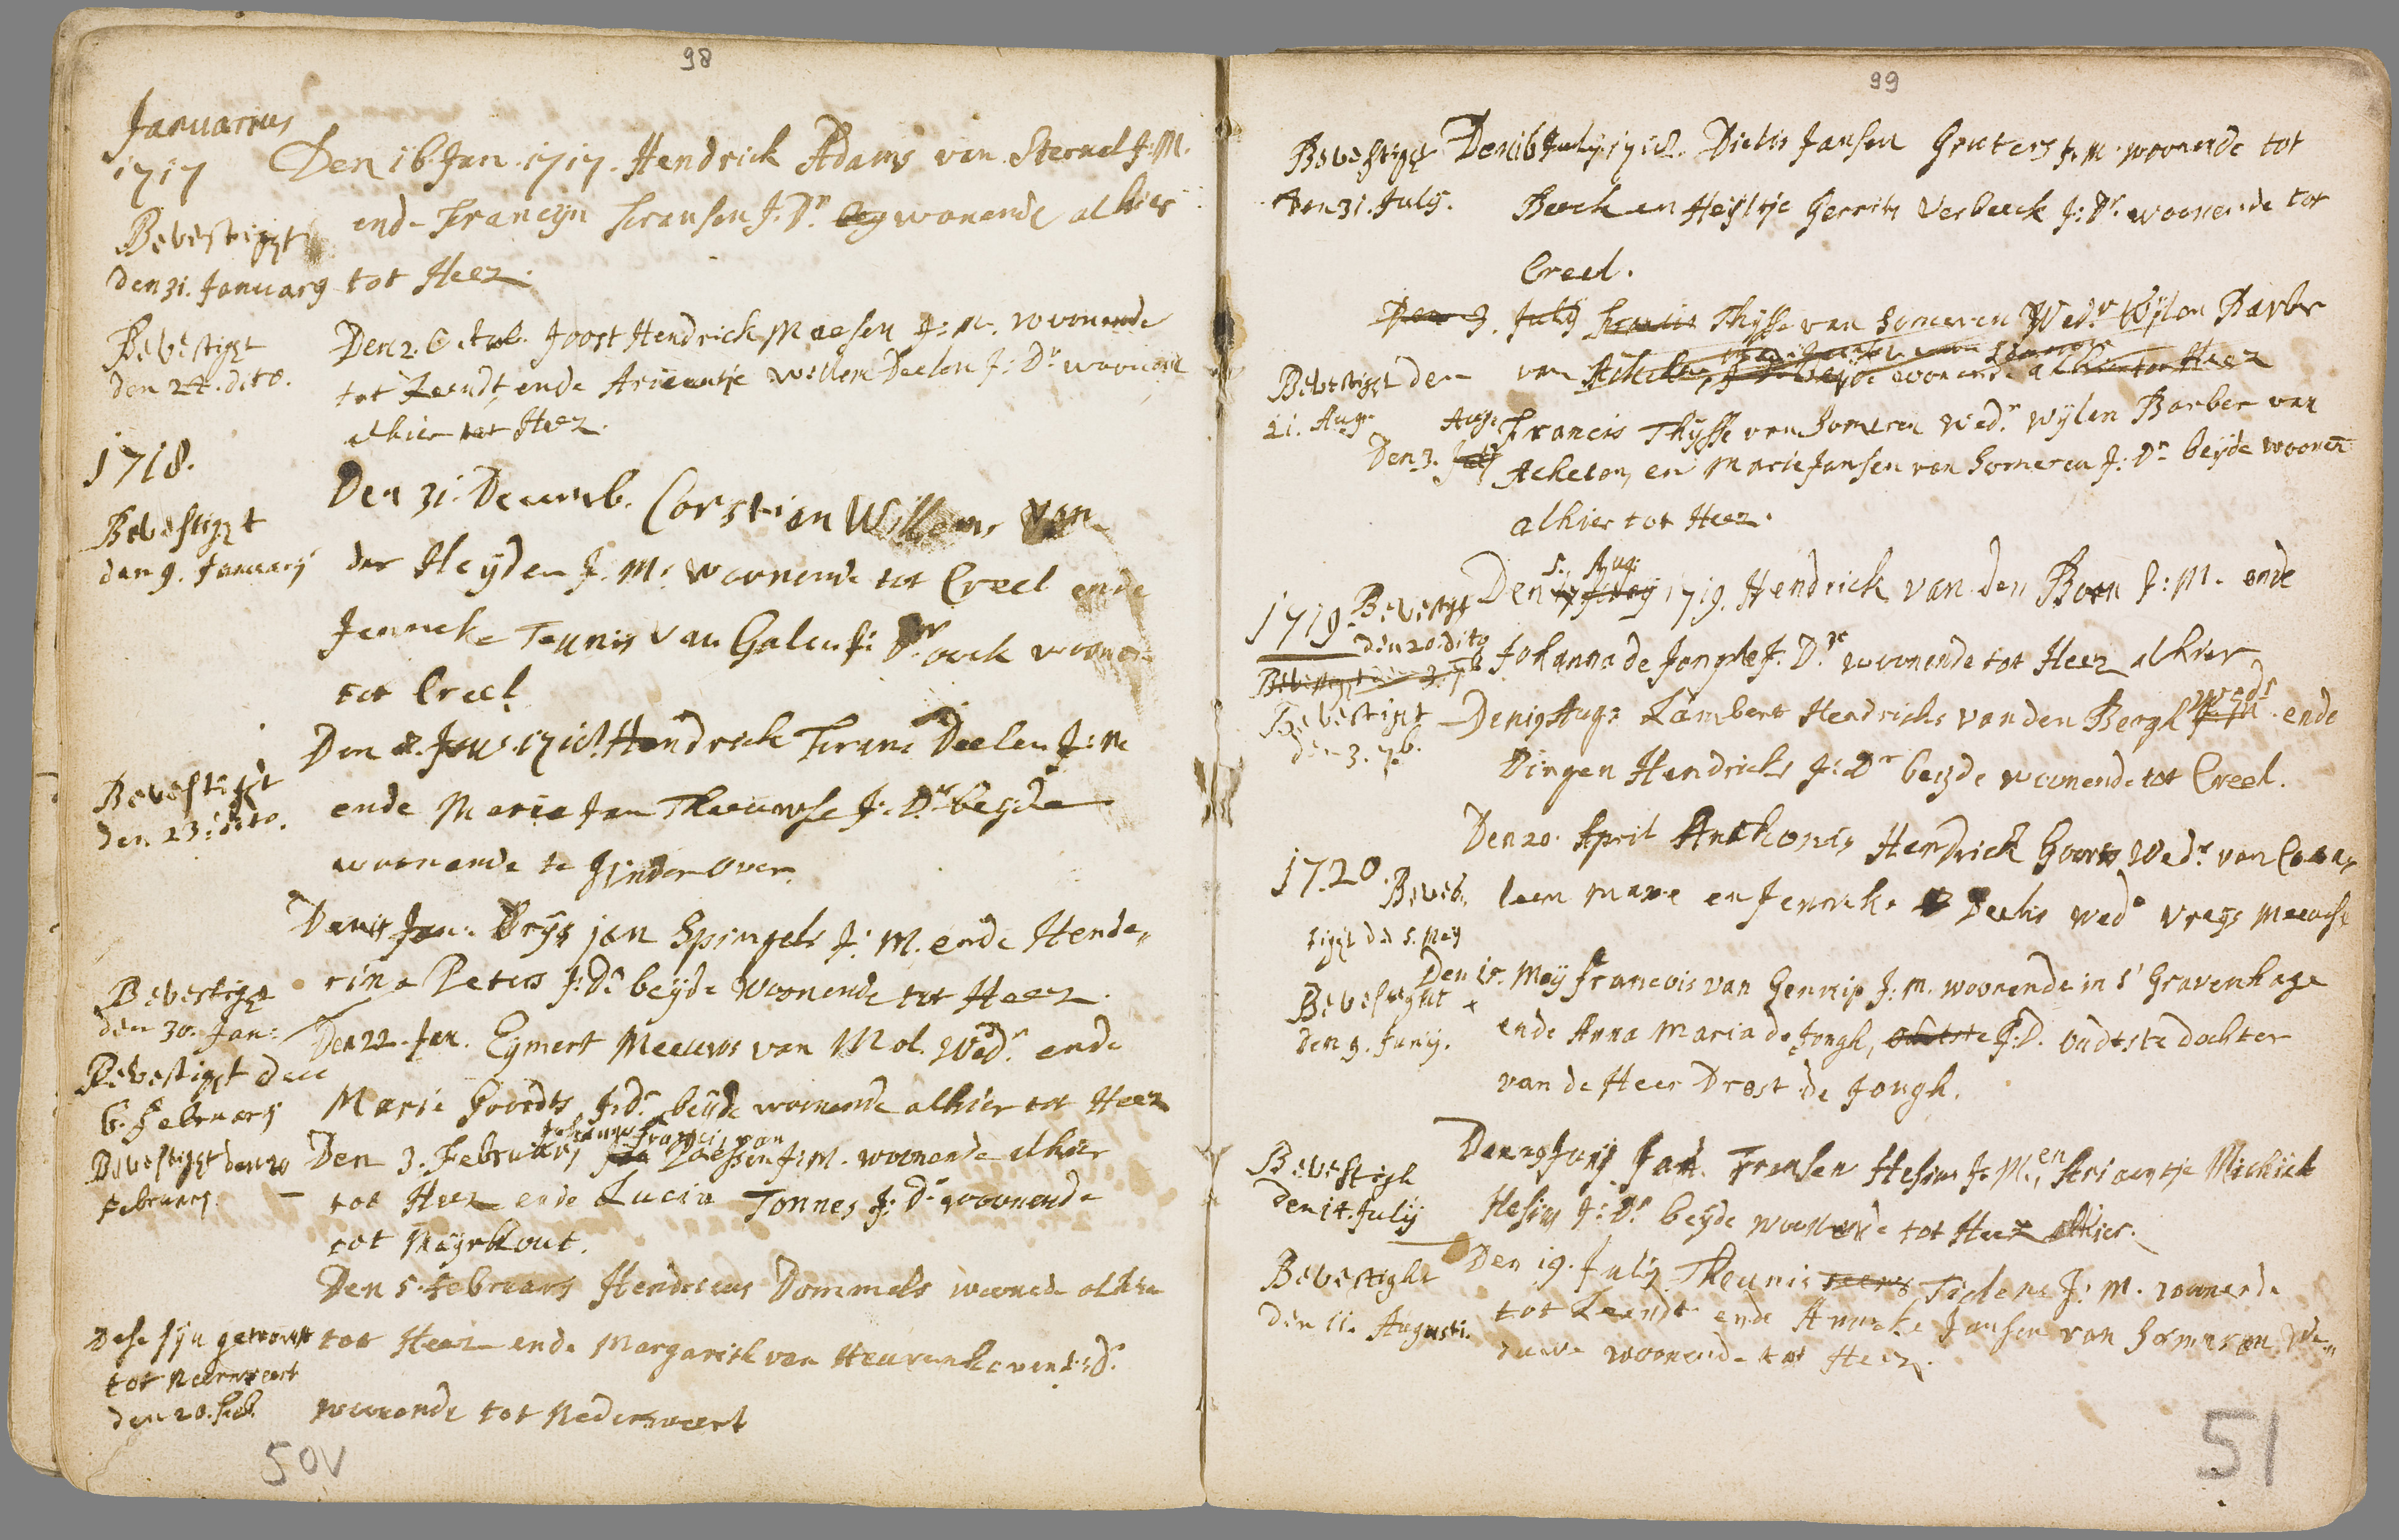 98
Januarius
1717 Den 16 Jan. 1717. Hendrick Adams van Stersel J:M.
Bevestigt ende Francyn Fransen J:Dr. woonende alhier
den 31. January tot Heez.
Bevestigt Den 2. Octob. Joost Hendrick Maesen J:M. woonende
den 24. dito. tot Leendt, ende Ariaentje Willem Deelen J:Dr. woonende
alhier tot Heez.
1718.
Bevestigt Den 31. Decemb. Corstiaen Willems van
den 9. January der Heyden J.M. woonende tot Creel ende
Jenneke Teunis van Galen J: Dr. oock woonen
tot Creel
Den 8. Jan. 1718. Hendrick Frans Deelen J:M
Bevestigt ende Maria Jan Theeuwse J:Dr. beyde
den 23. dito. woonende te Ginderover.
Den Jan. Drys jan Spimgels J:M. ende Hende„
Bevestigt rina Peters J:Dr beyde woonende tot Heez.
den 30. Jan:
Den 22. Jan. Eymert Meeuws van Mol. Wedr. ende
Bevestigt den
6. February Marie Goordts J:Dr. beyde woonende alhier tot Heez
Bevestigt den 20 Den 3. February Johannes Francis van Laessen J:M. woonende alhier
February. tot Heez ende Lucia Tonnes J:Dr woonende
tot Mayrhout.
Den 5. February Hendricus Dommels woonede alhier
Dese syn getrouwt tot Heez ende Margarith van Heuvenhoven J:Dr.
tot Neerweert
den 20. Feb. woonende tot Nederweert
50V
99
Bevestigt Den 16 July 1718. Dielis Jansen Gruters J.M. woonende tot
den 31. July. Beeck en Heyltje Gerrits Verbeeck J:Dr. woonende tot
Creel.
Den 3. July Francis Thysse van Someren Wedr. Wylen Barber
Bevestigt den van Achelen, J.D. beyde woonende alhier tot Heez
21. Aug. Aug.
Den 3. July Francis Thysse van Someren Wedr. wylen Barber van
Achelen, en Marie Jansen van Someren J:Dr beyde woonen
alhier tot Heez.
5. Aug.
1719. Bevestigt Den 1719. Hendrick van den Boen J:M. ende
den 20 dito Johanna de Jonghe J.Dr. woonende tot Heez alhier
Bevestigt Den 19 Aug. Lambert Hendricks van den Bergh Wedr ende
den 3. 7b. Dingen Hendricks J:Dr beyde woonende tot Creel.
Den 20. April Anthonis Hendrick Goorts Wedr. van
1720. Beves„ leen Marie en Jenneke Deelis wede Vreys Meeuse
tigt den 5. May
Den 15. May Francois van Gennip J:M. woonende in s' Gravenhage
Bevestight +
den 9. Juny. ende Anna Maria de Jongh, J:D. oudtste dochter
van de Heer Drost de Jongh.
Den 29 Juny Jan. Fransen Hesius J:M., en Ariaentje Michiels
Bevestigh
den 14. July Hesius J:Dr. beyde woonende tot Heez alhier.
Bevestight Den 19. July Theunis Teuws Tielens J:M. woonende
den 11. Augusti. tot Leendt ende Anneke Jansen van Someren We„
duwe woonende tot Heez.
51